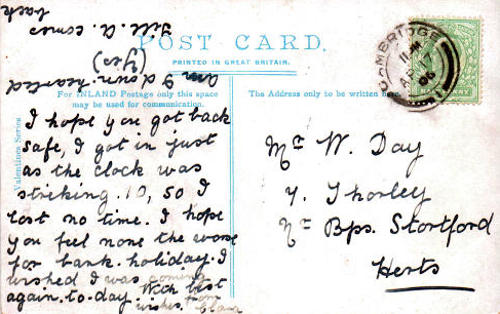 POST CARD.
PRINTED IN GREAT BRITAIN.
For INLAND Postage only this space
may be used for communication.
The Address only to be written here.
Valentines Series
I hope you got back
safe, I got in just
as the clock was
striking. 10, so I
lost no time. I hope
you feel none the worse
for bank. holiday. I
wished I was coming
again. to-day. With best
wishes. from
Clara
am I down. hearted
(Yes)
Till. A. comes
back
Mr W. Day
Y. Thorley
Nr Bps. Stortford
Herts
CAMBRIDGE
11 PM
AP 17
06
HALFPENNY